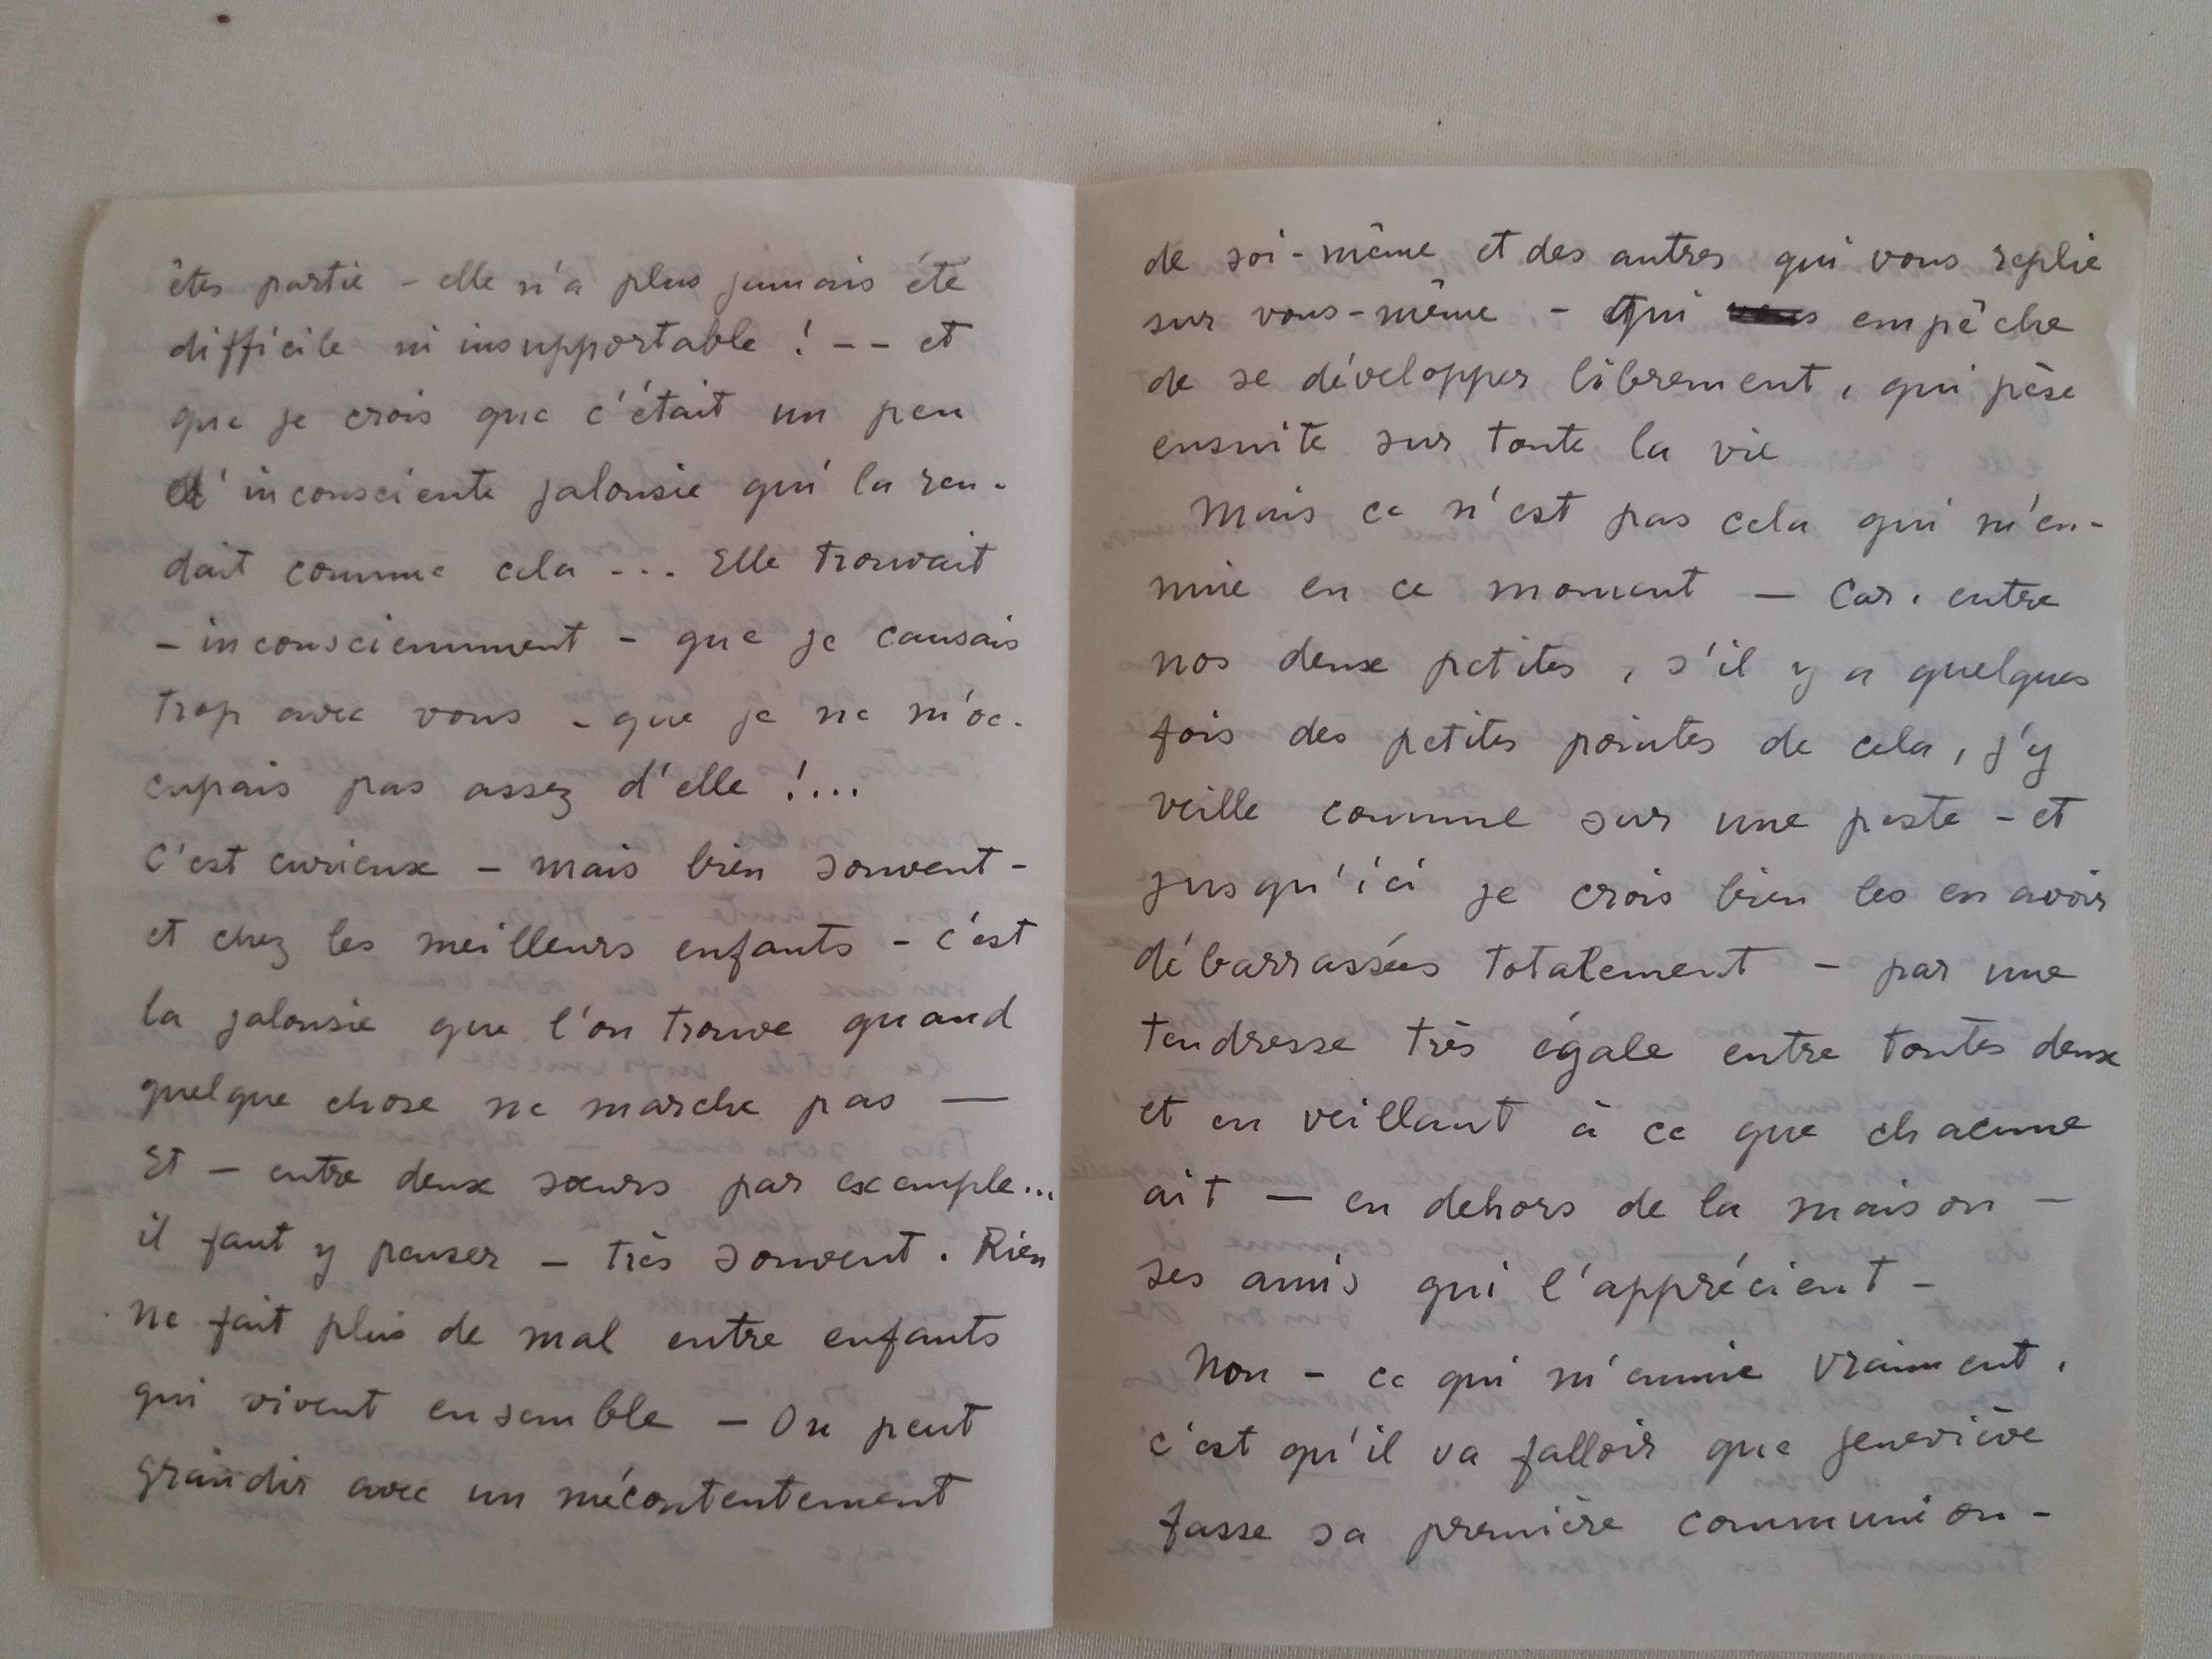 êtes partie - elle n'a plus jamais été
difficile ni insupportable ! -- et
que je crois que c'était un peu
d'inconsciente jalousie qui la ren-
dait comme cela ... Elle trouvait
- inconsciemment - que je causais
trop avec vous - que je ne m'oc-
cupais pas assez d'elle !...
C'est curieux - mais bien souvent -
et chez les meilleurs enfants - c'est
la jalousie que l'on trouve quand
quelque chose ne marche pas —
Et - entre deux sœurs par exemple...
il faut y penser - très souvent. Rien
ne fait plus de mal entre enfants
qui vivent ensemble - On peut
grandir avec un mécontentement
de soi-même et des autres qui vous replie
sur vous-même - qui empêche
de se développer librement, qui pèse
ensuite sur toute la vie
Mais ce n'est pas cela qui m'en-
nuie en ce moment — Car, entre
nos deux petites, s'il y a quelques
fois des petites pointes de cela, j'y
veille comme sur une peste - et
jusqu'ici je crois bien les en avoir
débarrassées totalement - par une
tendresse très égale entre toutes deux
et en veillant à ce que chacune
ait — en dehors de la maison —
ses amis qui l'apprécient -
Non - ce qui m'ennuie vraiment,
c'est qu'il va falloir que Geneviève
fasse sa première communion -